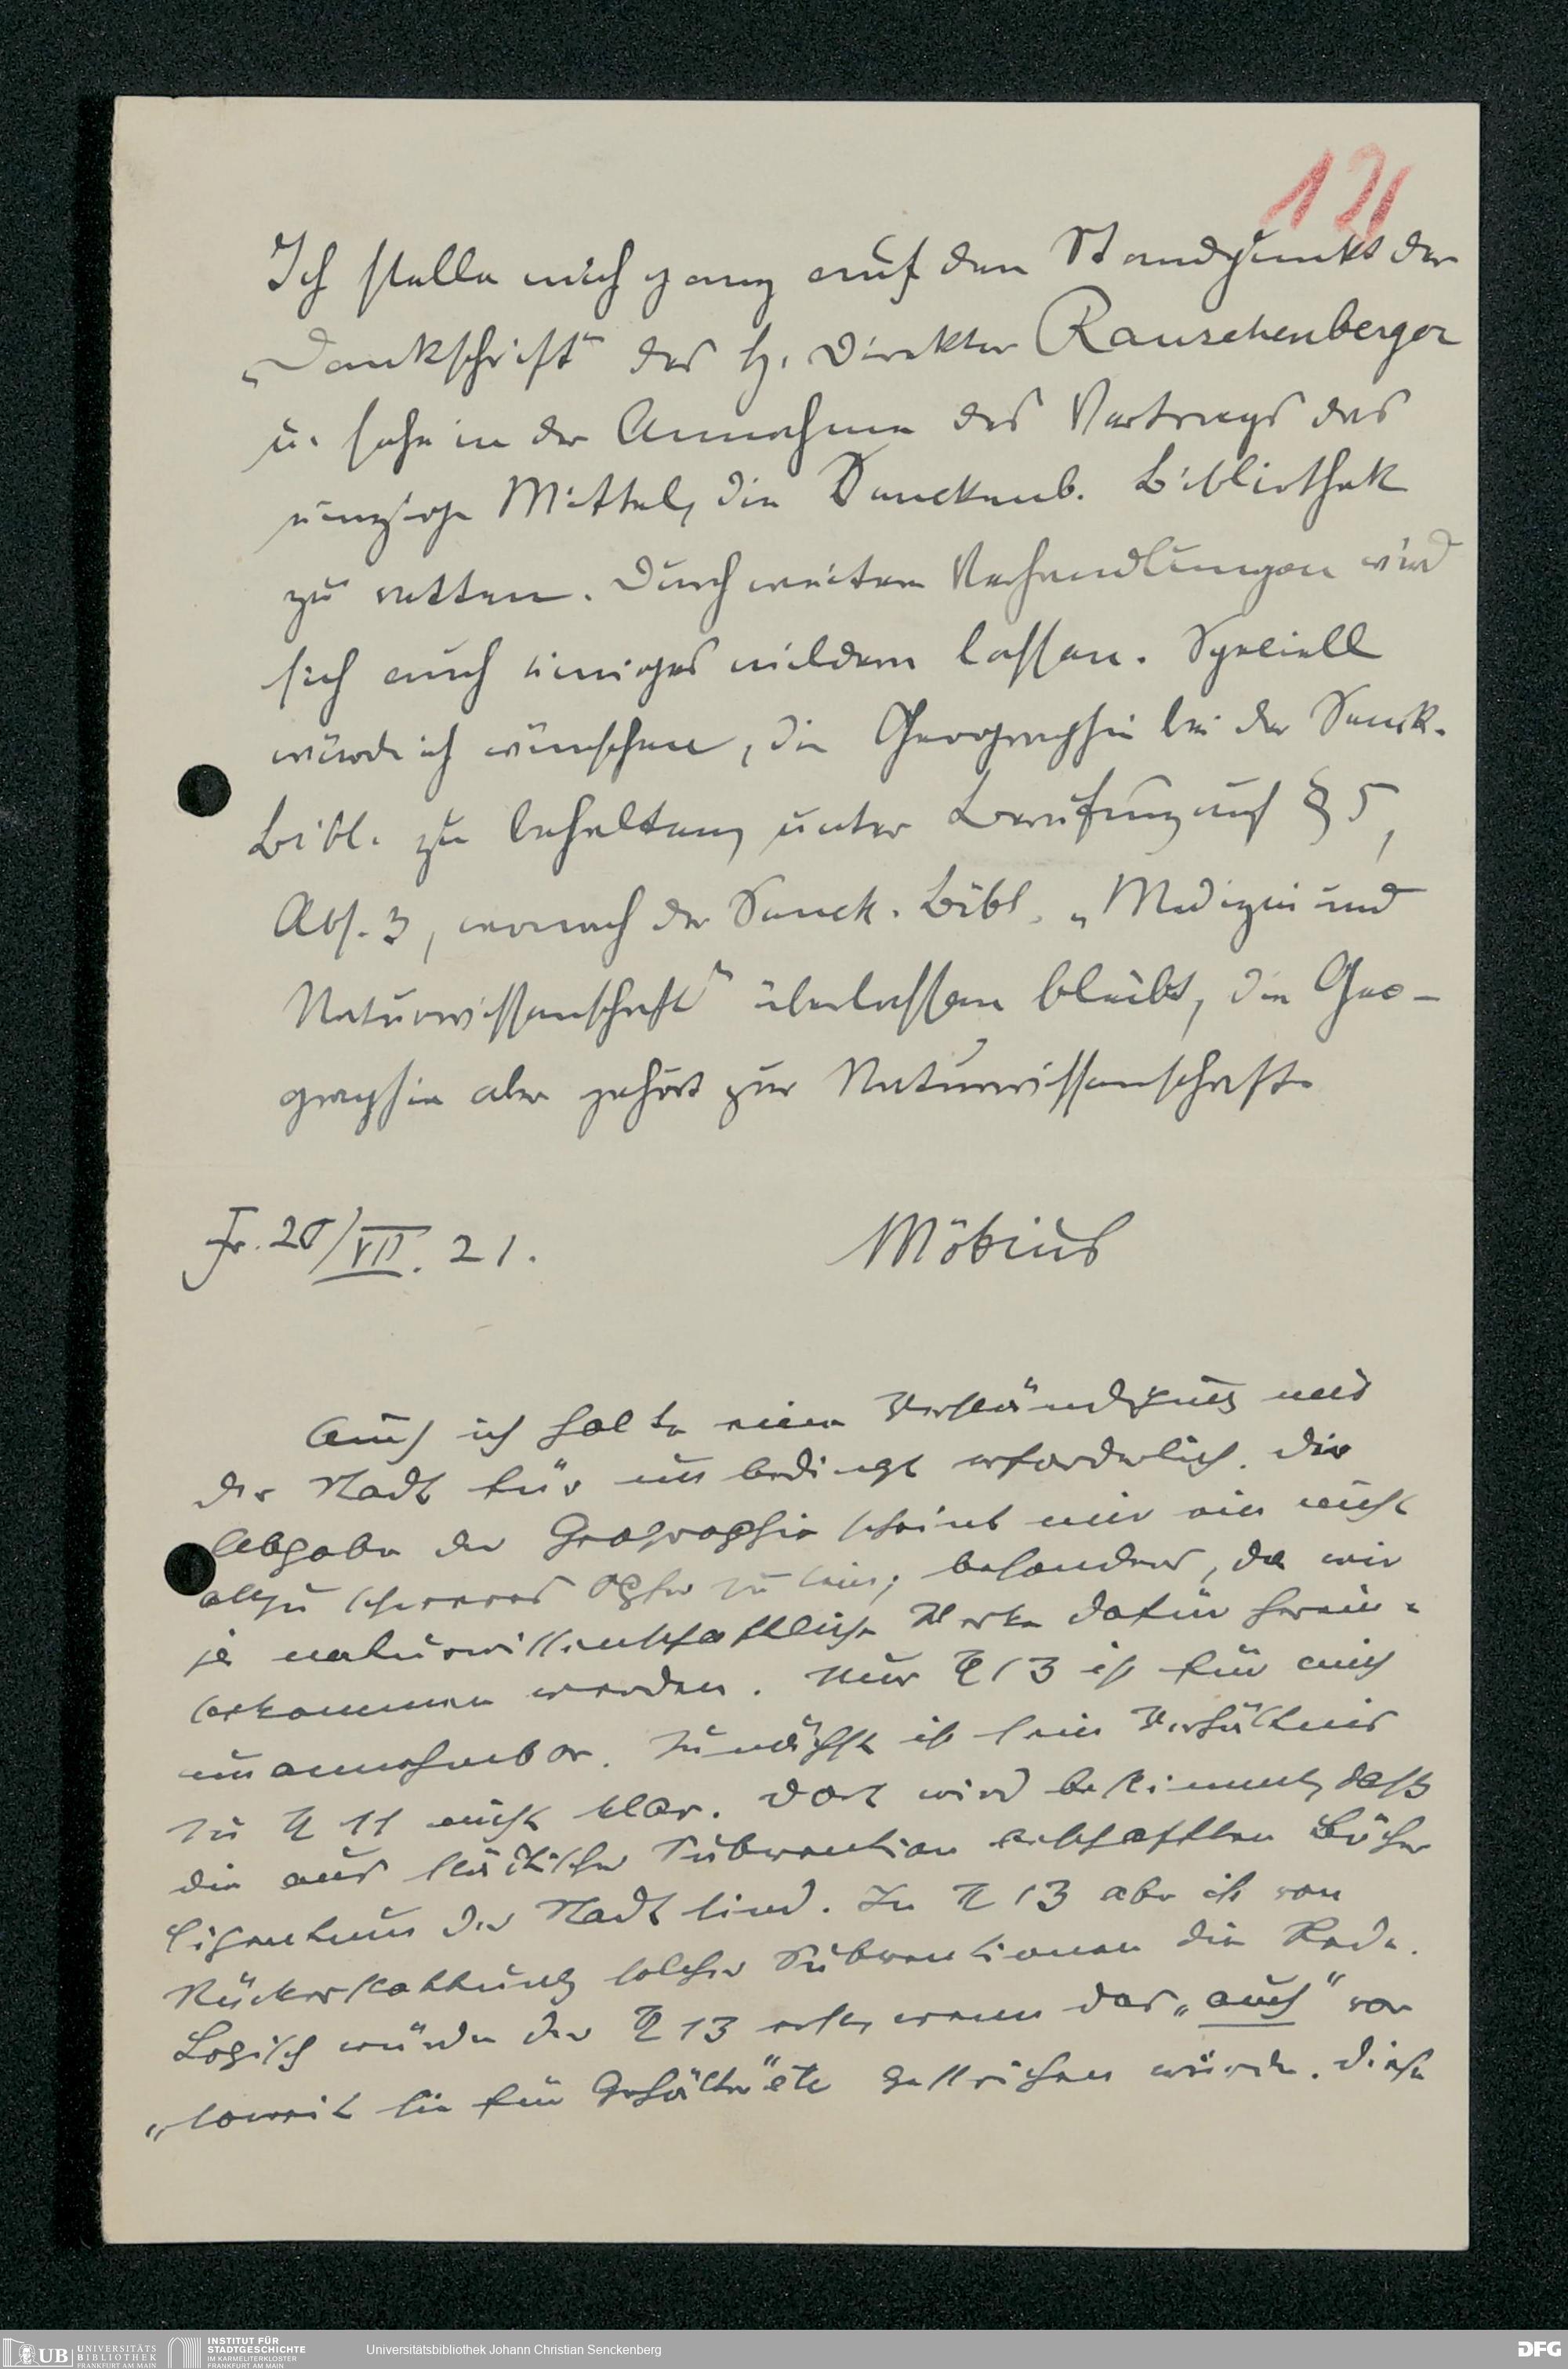 121
Ich stelle mich ganz auf den Standpunkt der
„Denkschrift“ des H. Direktor Rauschenberger
u. sehe in der Annahme des Vertrags das
einzige Mittel, die Senckenb. Bibliothek
zu retten. Durch weitere Verhandlungen wird
sich auch einiges mildern lassen. Speciell
würde ich wünschen, die Geographie bei der Senck.
Bibl. zu behalten, unter Berufung auf § 5,
Abs. 3, wonach der Senck. Bibl. „Medizin und
Naturwissenschaft“ überlassen bleibt, die Geo-
graphie aber gehört zur Naturwissenschaft.
Fr. 20/VII. 21.
Möbius
Auch ich halte eine Verständigung mit
der Stadt für unbedingt erforderlich. Die
Abgabe der Geographie scheint mir ein nicht
allzu schweres Opfer zu sein, besonders, da wir
ja naturwissenschaftliche Werke dafür herein-
bekommen werden. Nur § 13 ist für mich
unannehmbar. Zunächst ist sein Verhältnis
zu § 11 nicht klar. Dort wird bestimmt, daß
die aus städtischer Subvention beschafften Bücher
Eigentum der Stadt sind. In § 13 aber ist von
Rückerstattung solcher Subventionen die Rede.
Logisch würde der § 13 erst, wenn das „auch“ vor
„soweit sie für Gehälter“ etc gestrichen würde. Diese
UB UNIVERSITÄTS
BIBLIOTHEK
FRANKFURT AM MAIN
INSTITUT FÜR
STADTGESCHICHTE
IM KARMELITERKLOSTER
FRANKFURT AM MAIN
Universitätsbibliothek Johann Christian Senckenberg
DFG